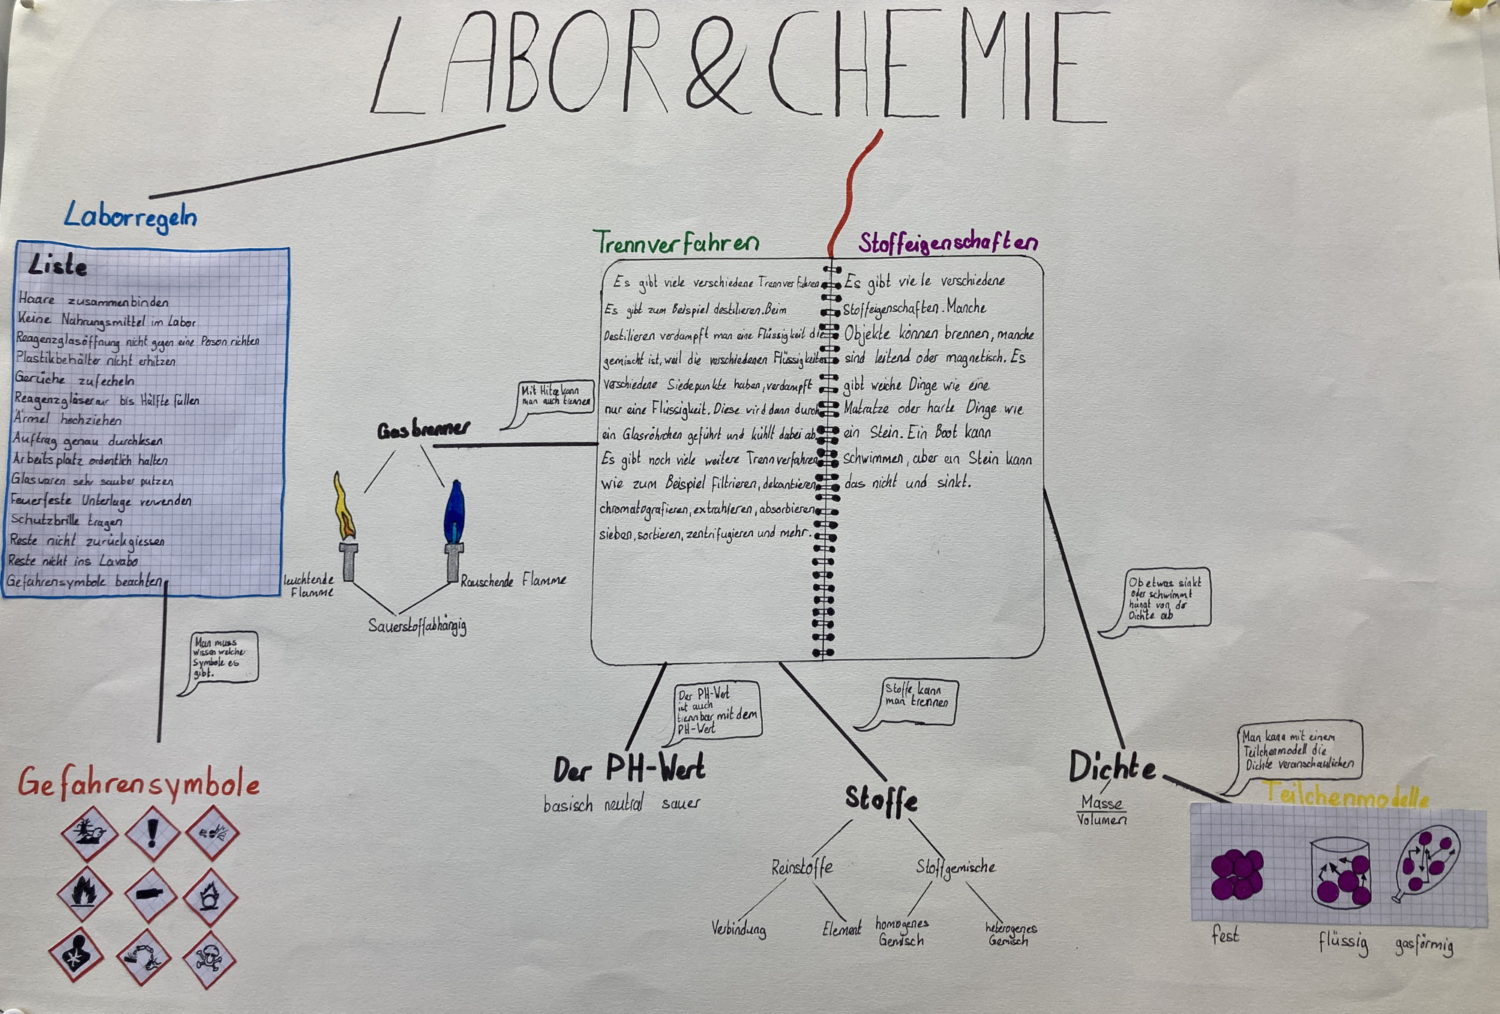 LABOR & CHEMIE
Laborregeln
Liste
Haare zusammenbinden
Keine Nahrungsmittel im Labor
Reagenzglasöffnung nicht gegen eine Person richten
Plastikbehälter nicht erhitzen
Gerüche zufecheln
Reagenzgläser nur bis Hälfte füllen
Ärmel hochziehen
Auftrag genau durchlesen
Arbeitsplatz ordentlich halten
Glaswaren sehr sauber putzen
Feuerfeste Unterlage verwenden
Schutzbrille tragen
Reste nicht zurückgiessen
Reste nicht ins Lavabo
Gefahrensymbole beachten
Man muss
wissen welche
Symbole es
gibt.
Gefahrensymbole
Gasbrenner
Mit Hitze kann
man auch trennen
leuchtende
Flamme
Rauschende Flamme
Sauerstoffabhängig
Trennverfahren
Es gibt viele verschiedene Trennverfahren
Es gibt zum Beispiel destilieren. Beim
Destilieren verdampft man eine Flüssigkeit die
gemischt ist, weil die verschiedenen Flüssigkeiten
verschiedene Siedepunkte haben, verdampft
nur eine Flüssigkeit. Diese wird dann durch
ein Glasröhrchen geführt und kühlt dabei ab.
Es gibt noch viele weitere Trennverfahren
wie zum Beispiel filtrieren, dekantieren,
chromatografieren, extrahieren, absorbieren,
sieben, sortieren, zentrifugieren und mehr.
Stoffeigenschaften
Es gibt viele verschiedene
Stoffeigenschaften. Manche
Objekte können brennen, manche
sind leitend oder magnetisch. Es
gibt weiche Dinge wie eine
Matratze oder harte Dinge wie
ein Stein. Ein Boot kann
schwimmen, aber ein Stein kann
das nicht und sinkt.
Der PH-Wert
ist auch
trennbar mit dem
PH-Wert
Der PH-Wert
basisch neutral sauer
Stoffe kann
man trennen
Stoffe
Reinstoffe
Stoffgemische
Verbindung
Element
homogenes
Gemisch
heterogenes
Gemisch
Ob etwas sinkt
oder schwimmt
hängt von der
Dichte ab
Dichte
Masse
Volumen
Man kann mit einem
Teilchenmodell die
Dichte veranschaulichen
Teilchenmodelle
fest
flüssig
gasförmig